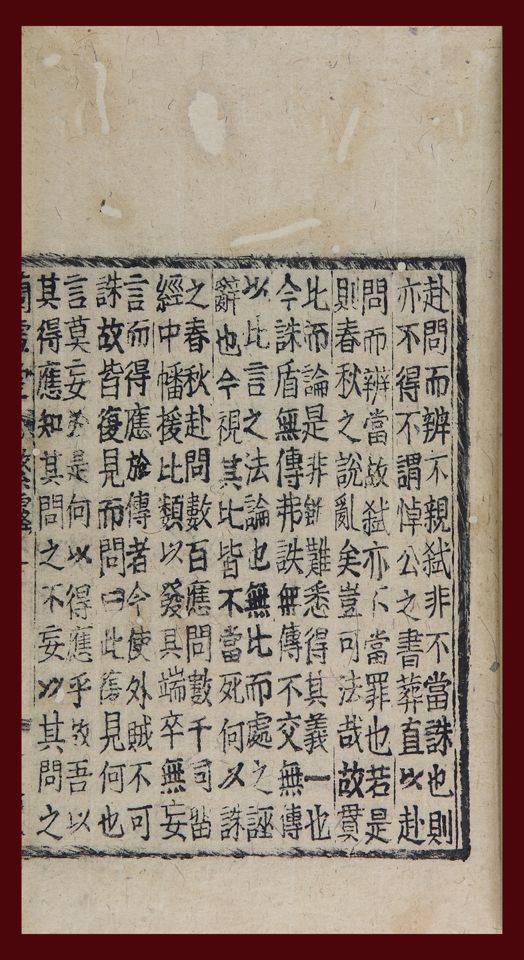 赴問而辨不親弑非不當誅也則
亦不得不謂悼公之書葬直以赴
問而辨當故弑亦不當罪也若是
則春秋之說亂矣豈可法哉故貫
比而論是非雖難悉得其義一也
今誅盾無傳弗誅無傳不交無傳
以比言之法論也無比而處之誣
辭也今視其比皆不當死何以誅
之春秋赴問數百應問數千同留
經中幡援比類以發其端卒無妄
言而得應於傳者今使外賊不可
誅故皆復見而問曰此復見何也
言莫妄於是何以得應乎故吾以
其得應知其問之不妄以其問之
蘭雪堂 繁露